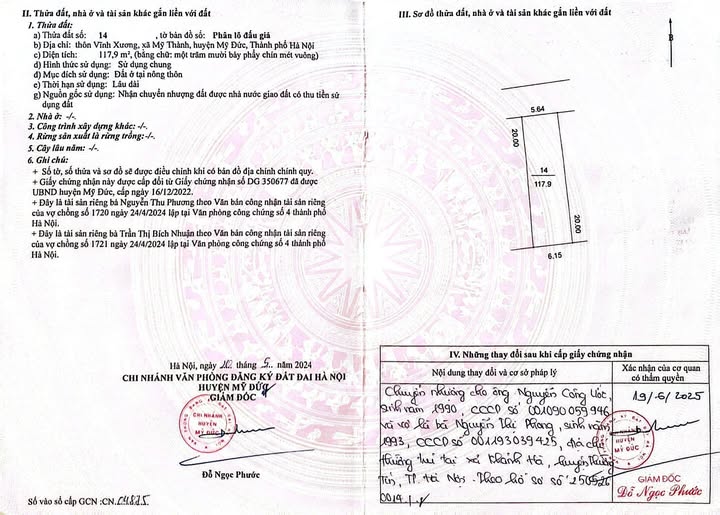 II. Thửa đất, nhà ở và tài sản khác gắn liền với đất
1. Thửa đất:
a) Thửa đất số: 14 , tờ bản đồ số: Phân lô đấu giá
b) Địa chỉ: thôn Vĩnh Xương, xã Mỹ Thành, huyện Mỹ Đức, Thành phố Hà Nội
c) Diện tích: 117,9 m², (bằng chữ: một trăm mười bảy phẩy chín mét vuông)
d) Hình thức sử dụng: Sử dụng chung
đ) Mục đích sử dụng: Đất ở tại nông thôn
e) Thời hạn sử dụng: Lâu dài
g) Nguồn gốc sử dụng: Nhận chuyển nhượng đất được nhà nước giao đất có thu tiền sử
dụng đất
2. Nhà ở: -/-.
3. Công trình xây dựng khác: -/-.
4. Rừng sản xuất là rừng trồng: -/-.
5. Cây lâu năm: -/-.
6. Ghi chú:
+ Số tờ, số thửa và sơ đồ sẽ được điều chỉnh khi có bản đồ địa chính chính quy.
+ Giấy chứng nhận này được cấp đổi từ Giấy chứng nhận số DG 350677 đã được
UBND huyện Mỹ Đức, cấp ngày 16/12/2022.
+ Đây là tài sản riêng bà Nguyễn Thu Phương theo Văn bản công nhận tài sản riêng
của vợ chồng số 1720 ngày 24/4/2024 lập tại Văn phòng công chứng số 4 thành phố
Hà Nội.
+ Đây là tài sản riêng bà Trần Thị Bích Nhuận theo Văn bản công nhận tài sản riêng
của vợ chồng số 1721 ngày 24/4/2024 lập tại Văn phòng công chứng số 4 thành phố
Hà Nội.
Hà Nội, ngày 20 tháng 5 năm 2024
CHI NHÁNH VĂN PHÒNG ĐĂNG KÝ ĐẤT ĐAI HÀ NỘI
HUYỆN MỸ ĐỨC
GIÁM ĐỐC
CHI NHÁNH
HUYỆN
MỸ ĐỨC
Đỗ Ngọc Phước
Số vào sổ cấp GCN :CN.
III. Sơ đồ thửa đất, nhà ở và tài sản khác gắn liền với đất
5.64
20.00
14
117.9
20.00
6.15
IV. Những thay đổi sau khi cấp giấy chứng nhận
Nội dung thay đổi và cơ sở pháp lý
Xác nhận của cơ quan
có thẩm quyền
Chuyển nhượng cho ông Nguyễn Công Ước,
sinh năm 1990, CCCD số 001090059946
và vợ là bà Nguyễn Thị Phong, sinh năm
1993, CCCD số 001193039425, Địa chỉ
thường trú tại xã Khánh Hà, huyện Thường
Tín, TP Hà Nội. Theo hồ sơ số 250526
0014
19/6/2025
CHI NHÁNH
HUYỆN
MỸ ĐỨC
GIÁM ĐỐC
Đỗ Ngọc Phước